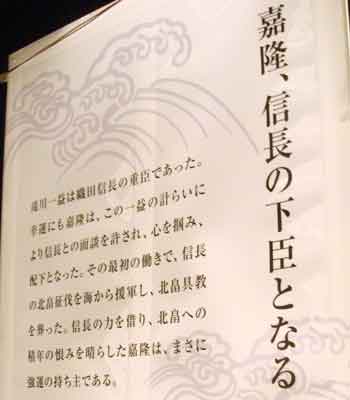 嘉隆、信長の下臣となる
滝川一益は織田信長の重臣であった。
幸運にも嘉隆は、この一益の計らいに
より信長との面談を許され、心を掴み、
配下となった。その最初の働きで、信長
の北畠征伐を海から援軍し、北畠具教
を葬った。信長の力を借り、北畠への
積年の恨みを晴らした嘉隆は、まさに
強運の持ち主である。